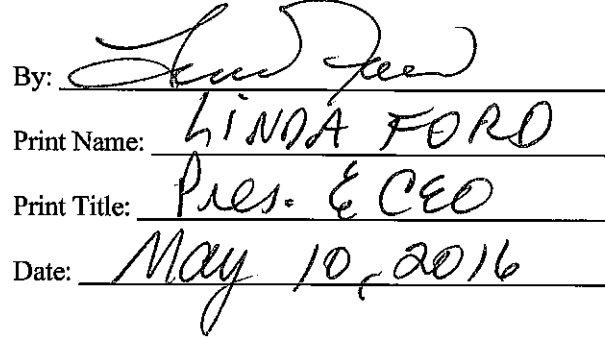 By:
Print Name: LINDA FORD
Print Title: Pres. & CEO
Date: May 10, 2016